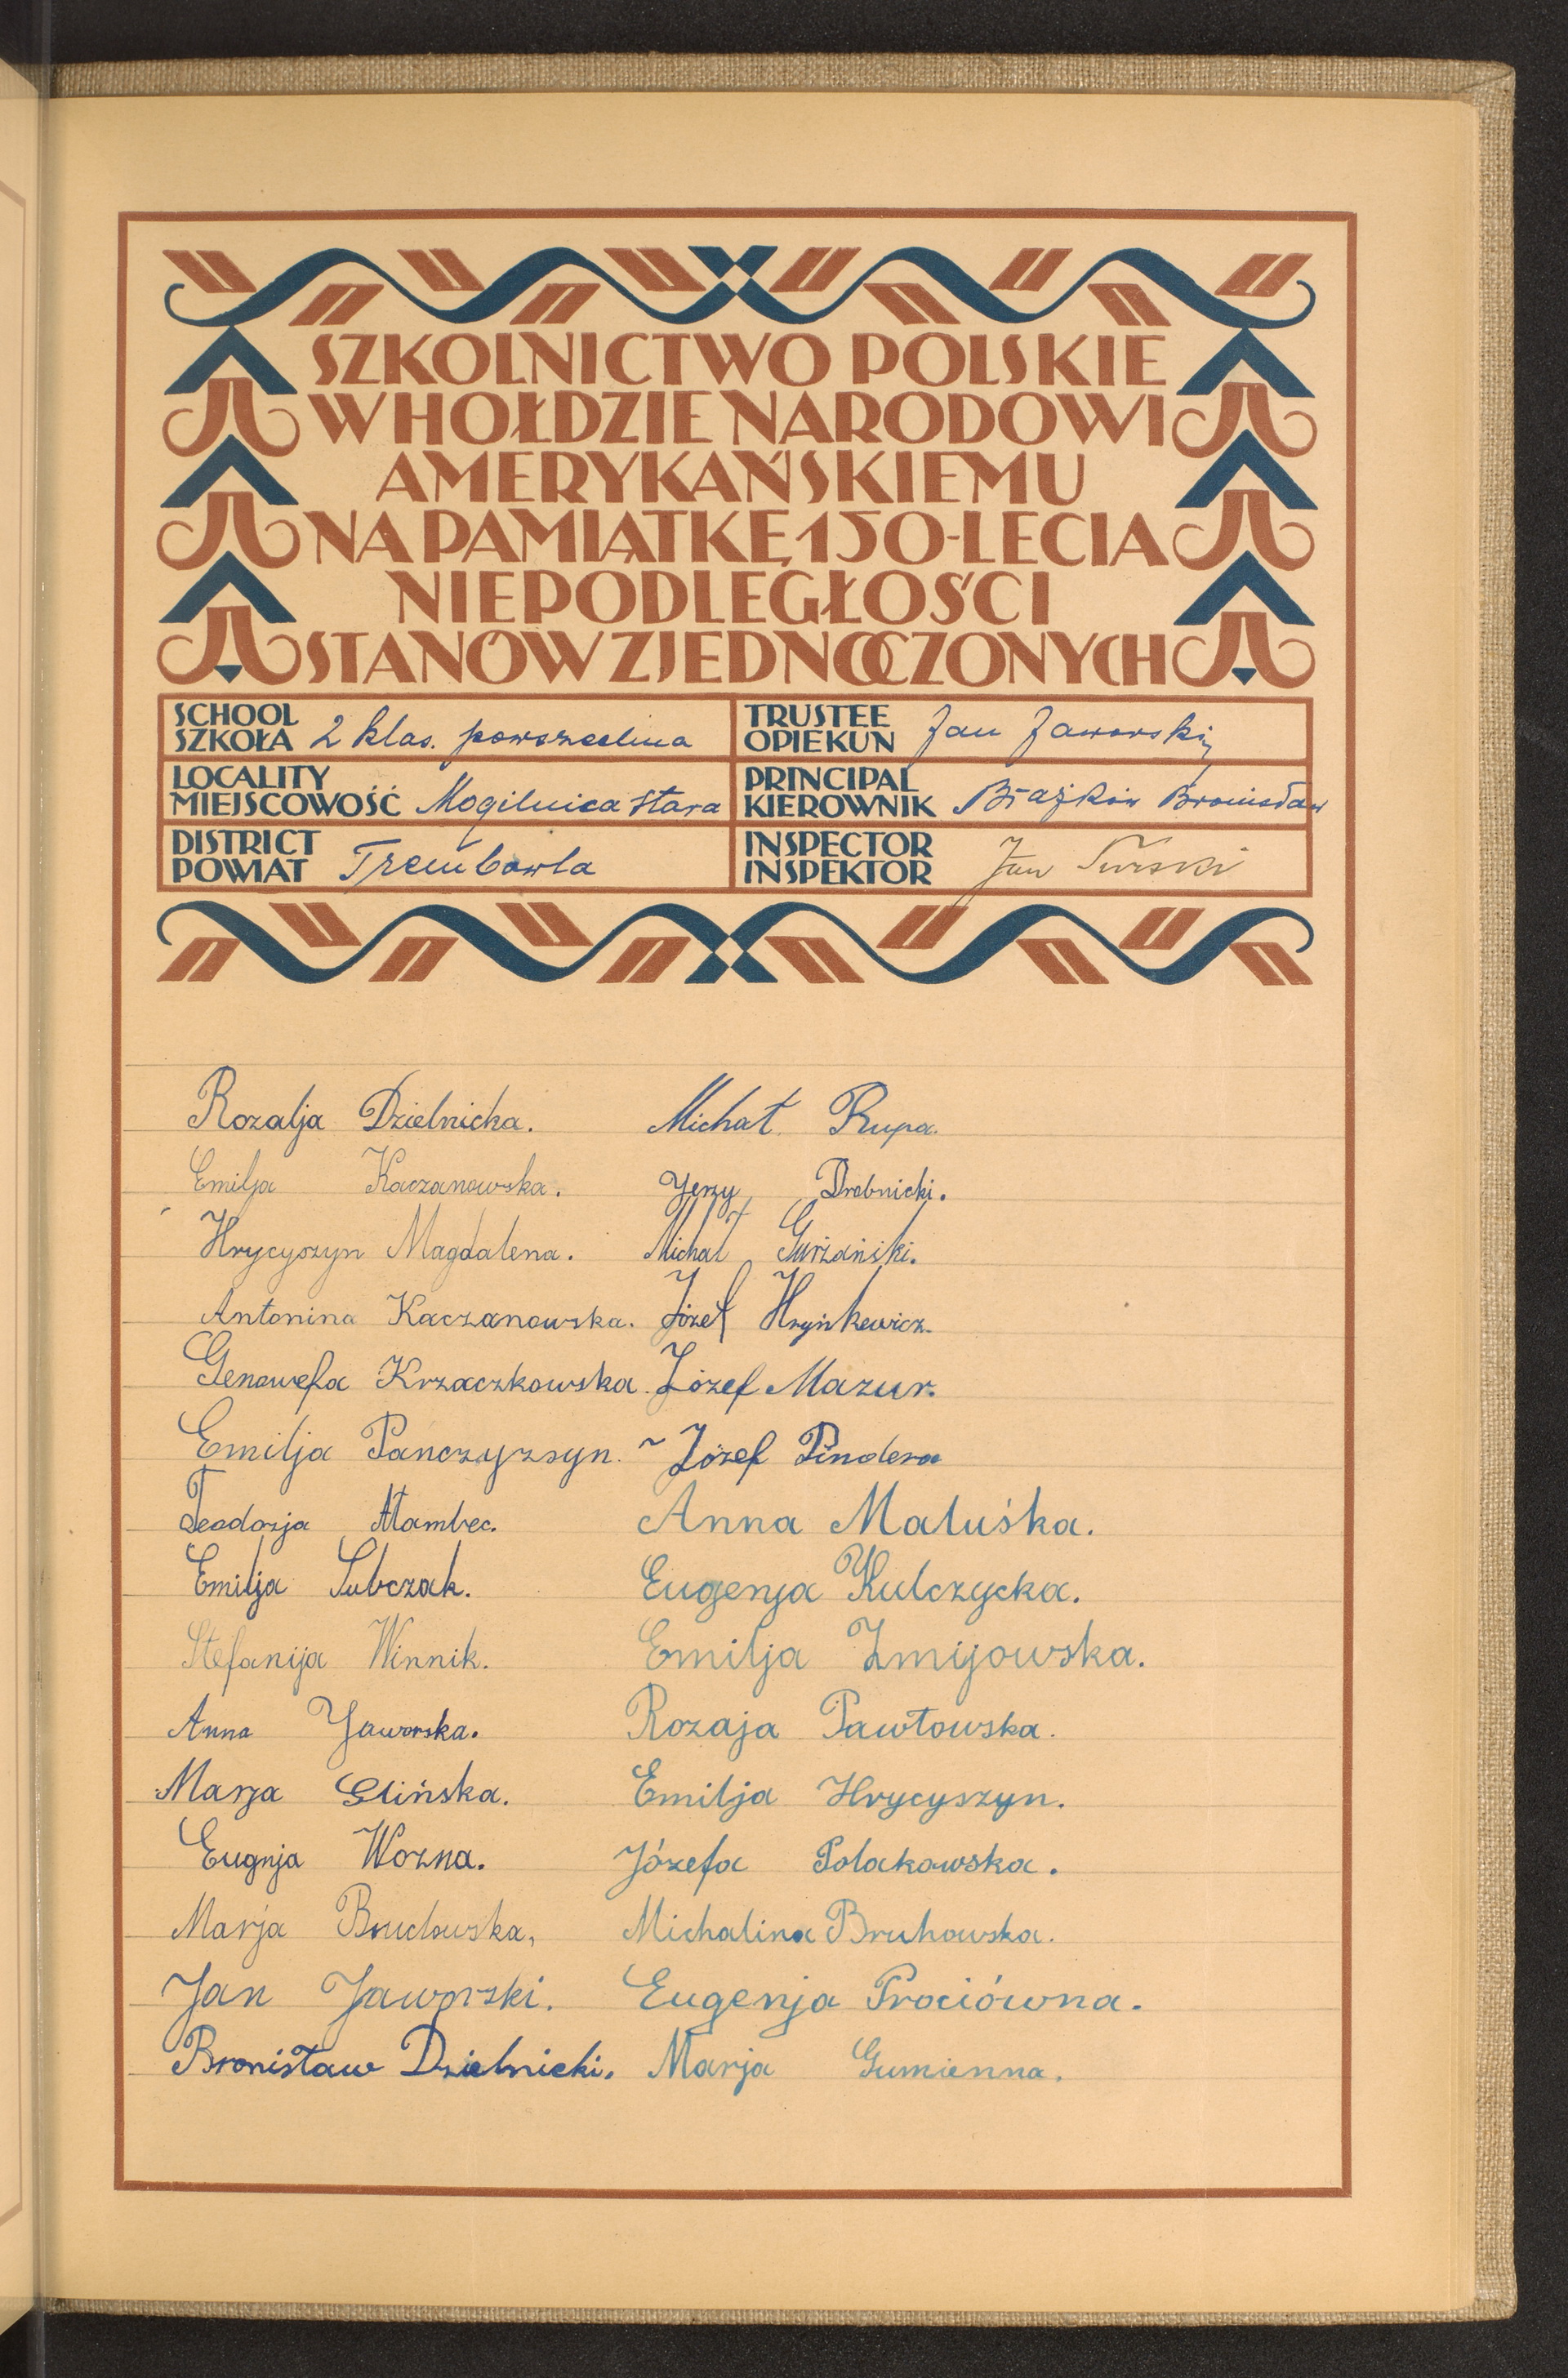 SZKOLNICTWO POLSKIE
W HOŁDZIE NARODOWI
AMERYKAŃSKIEMU
NA PAMIĄTKĘ 150-LECIA
NIEPODLEGŁOŚCI
STANÓW ZJEDNOCZONYCH
SCHOOL
SZKOŁA 2 klas. powszechna
TRUSTEE
OPIEKUN Jan Jaworski
LOCALITY
MIEJSCOWOŚĆ Mogilnica stara
PRINCIPAL
KIEROWNIK Bronisław
DISTRICT
POWIAT Trembowla
INSPECTOR
INSPEKTOR Jan
Rozalja Dzielnicka. Michał Rupa.
Emilja Kaczanowska. Jerzy Drobnicki.
Hrycyszyn Magdalena. Michał Gurżański.
Antonina Kaczanowska. Józef Hryńkewicz.
Genowefa Krzaczkowska. Józef Mazur.
Emilja Pańczyzsyn. Józef Pindera
Teodozja Anna Maluśka.
Emilja Subczak. Eugenja Kulczycka.
Stefanija Winnik. Emilja Żmijowska.
Anna Jaworska. Rozaja Pawłowska.
Marja Glińska. Emilja Hrycyszyn.
Eugnja Wozna. Józefa Polakowska.
Marja Michalina Bruhowska.
Jan Jaworski. Eugenja Prociówna.
Bronisław Dzielnicki. Marja Gumienna.